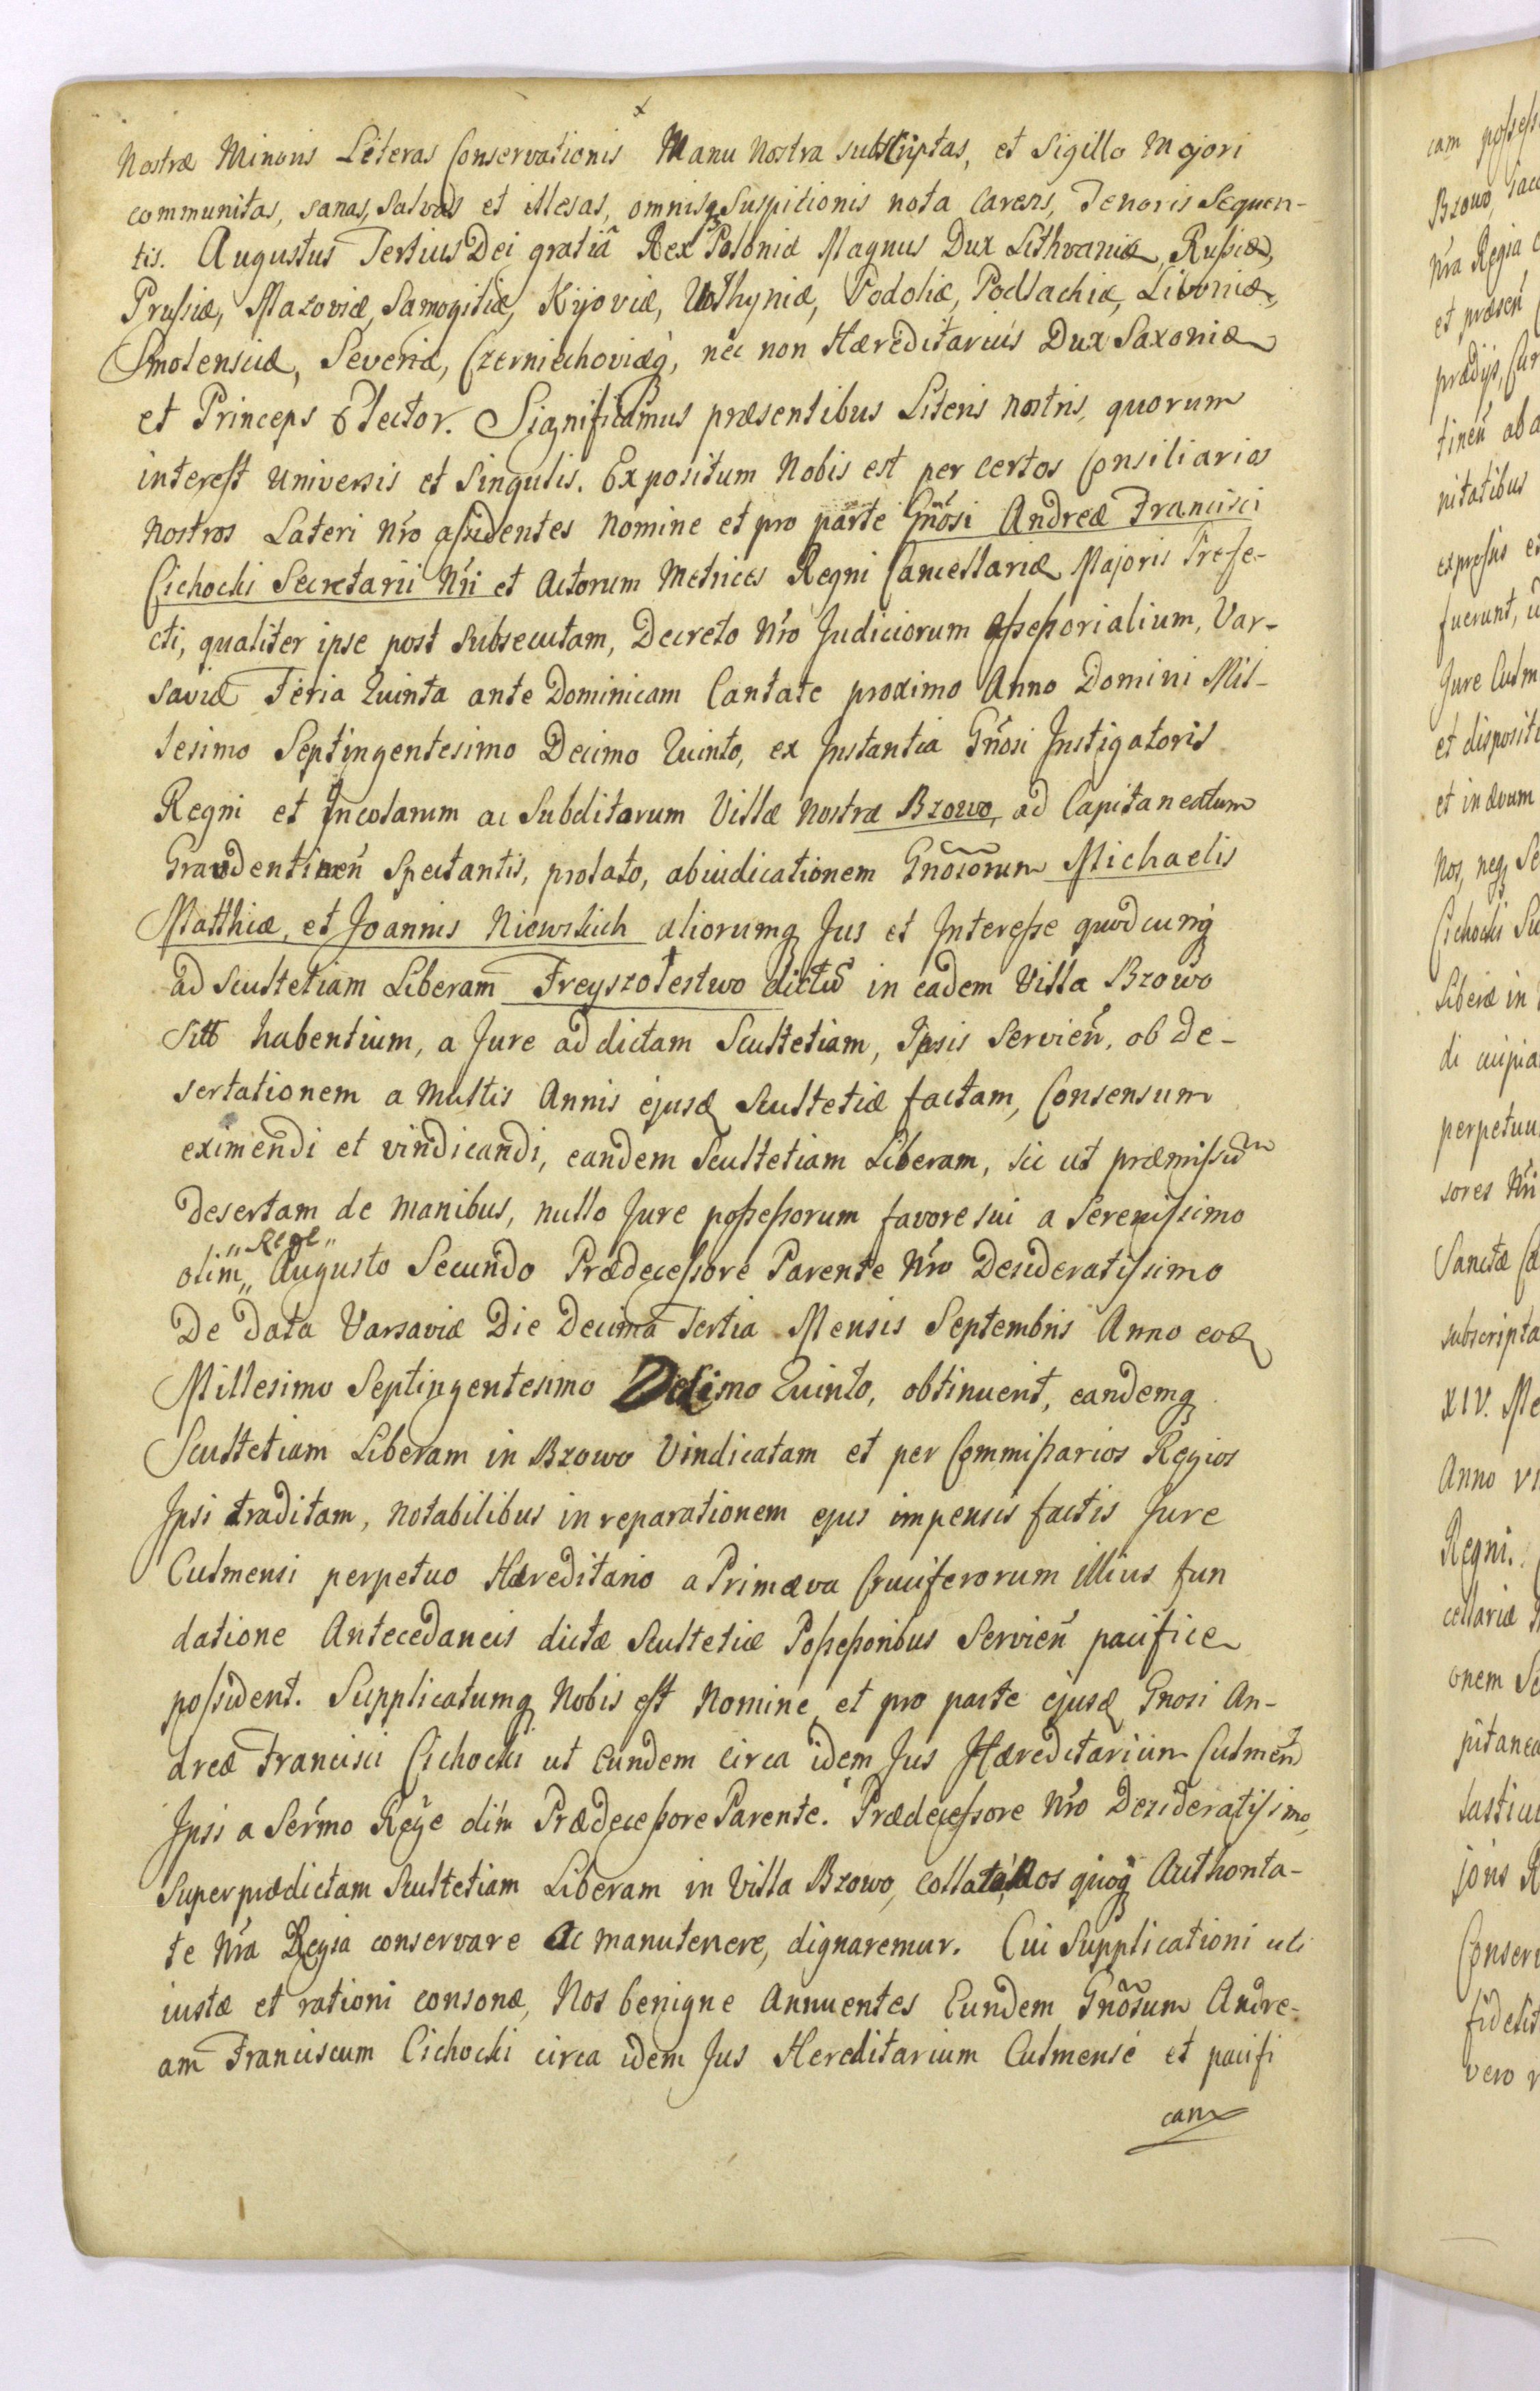 Nostræ Minoris Literas Conservationis Manu Nostra subscriptas, et Sigillo Majori
communitas, sanas, salvas et illesas, omnisq Suspitionis nota carens, Tenoris Sequen-
tis. Augustus Tertius Dei gratiâ Rex Poloniæ Magnus Dux Lithvaniæ, Rußiæ,
Prußiæ, Mazoviæ, Samogitiæ, Kijoviæ, Volhyniæ, Podoliæ, Podlachiæ, Livoniæ,
Smolensciæ, Severiæ, Czerniechoviæq, nec non Hæreditarius Dux Saxoniæ
et Princeps Elector. Significamus præsentibus Literis nostris, quorum
interest universis et Singulis. Expositum Nobis est per certos Consiliarios
Nostros Lateri Nr̃o aßidentes Nomine et pro parte Gñosi Andreæ Francisci
Cichocki Secretarii Nr̃i et Actorum Metrices Regni Cancellariæ Majoris Præfe-
cti, qualiter ipse post subsecutam, Decreto Nr̃o Judiciorum Aßeßorialium, Var-
saviæ Feria Quinta ante Dominicam Cantate proximo Anno Domini Mil-
lesimo Septingentesimo Decimo Quinto, ex Instantia Gñosi Instigatoris
Regni et Incolarum ac Subditorum Villæ Nostræ Bzowo, ad Capitaneatum
Graudentinen̄ Spectantis, prolato, abiudicationem Gñosorum Michaelis
Matthiæ, et Joannis Niewskich aliorumq Jus et Intereße quodcunq
ad Scultetiam Liberam Freyszolestwo dictũ in eadem Villa Bzowo
habentium, a Jure ad dictam Scultetiam, Ipsis Servien̄, ob De-
sertationem a Multis Annis ejusd Scultetiæ factam, Consensum
eximendi et vindicandi, eandem Scultetiam Liberam, sic ut præmißum
Desertam de manibus, nullo Jure poßeßorum favore sui a Serenißimo
„Rege„
olim„ Augusto Secundo Prædeceßore Parente Nr̃o Desideratißimo
De Data Varsaviæ Die Decima Tertia Mensis Septembris Anno eod
Millesimo Septingentesimo Decimo Quinto, obtinuerit, eandemq
Scultetiam Liberam in Bzowo Vindicatam et per Commißarios Regios
Ipsi traditam, notabilibus in reparationem ejus impensis factis Jure
Culmensi perpetuo Hæreditario a Primæva Cruciferorum illius fun
datione Antecedaneis dictæ Scultetiæ Poßeßoribus Servien̄ pacifice
poßident. Supplicatumq Nobis est Nomine et pro parte ejusd Gnosi An-
dreæ Francisci Cichocki ut Eundem circa idem Jus Hæreditarium Culmen̄
Ipsi a Ser̃mo Rege olim Prædeceßore Parente. Prædeceßore Nr̃o Desideratißimo,
super prædictam Scultetiam Liberam in Villa Bzowo, collatã, Nos quoq Authorita-
te Nr̃a Regia conservare ac manutenere, dignaremur. Cui Supplicationi uti
iustæ et rationi consonæ, Nos benigne Annuentes Eundem Gñosum Andre-
am Franciscum Cichocki circa idem Jus Hereditarium Culmense et pacifi
cam
cam poßeß
Bzowo,
Nr̃a Regia
et præsen̄
prædijs,
tinen̄ ab
nitatibus
expreßus
fuerunt,
Jure Culm
et dispositi
et in ævum
Nos, neq
Cichocki
Liberæ in
di
perpetuu
sores Nr̃i
Sanctæ
subscripta
XIV. Me
Anno
Regni.
cellariæ
onem
pitanea
joris R
Conserv
fidelit
vero